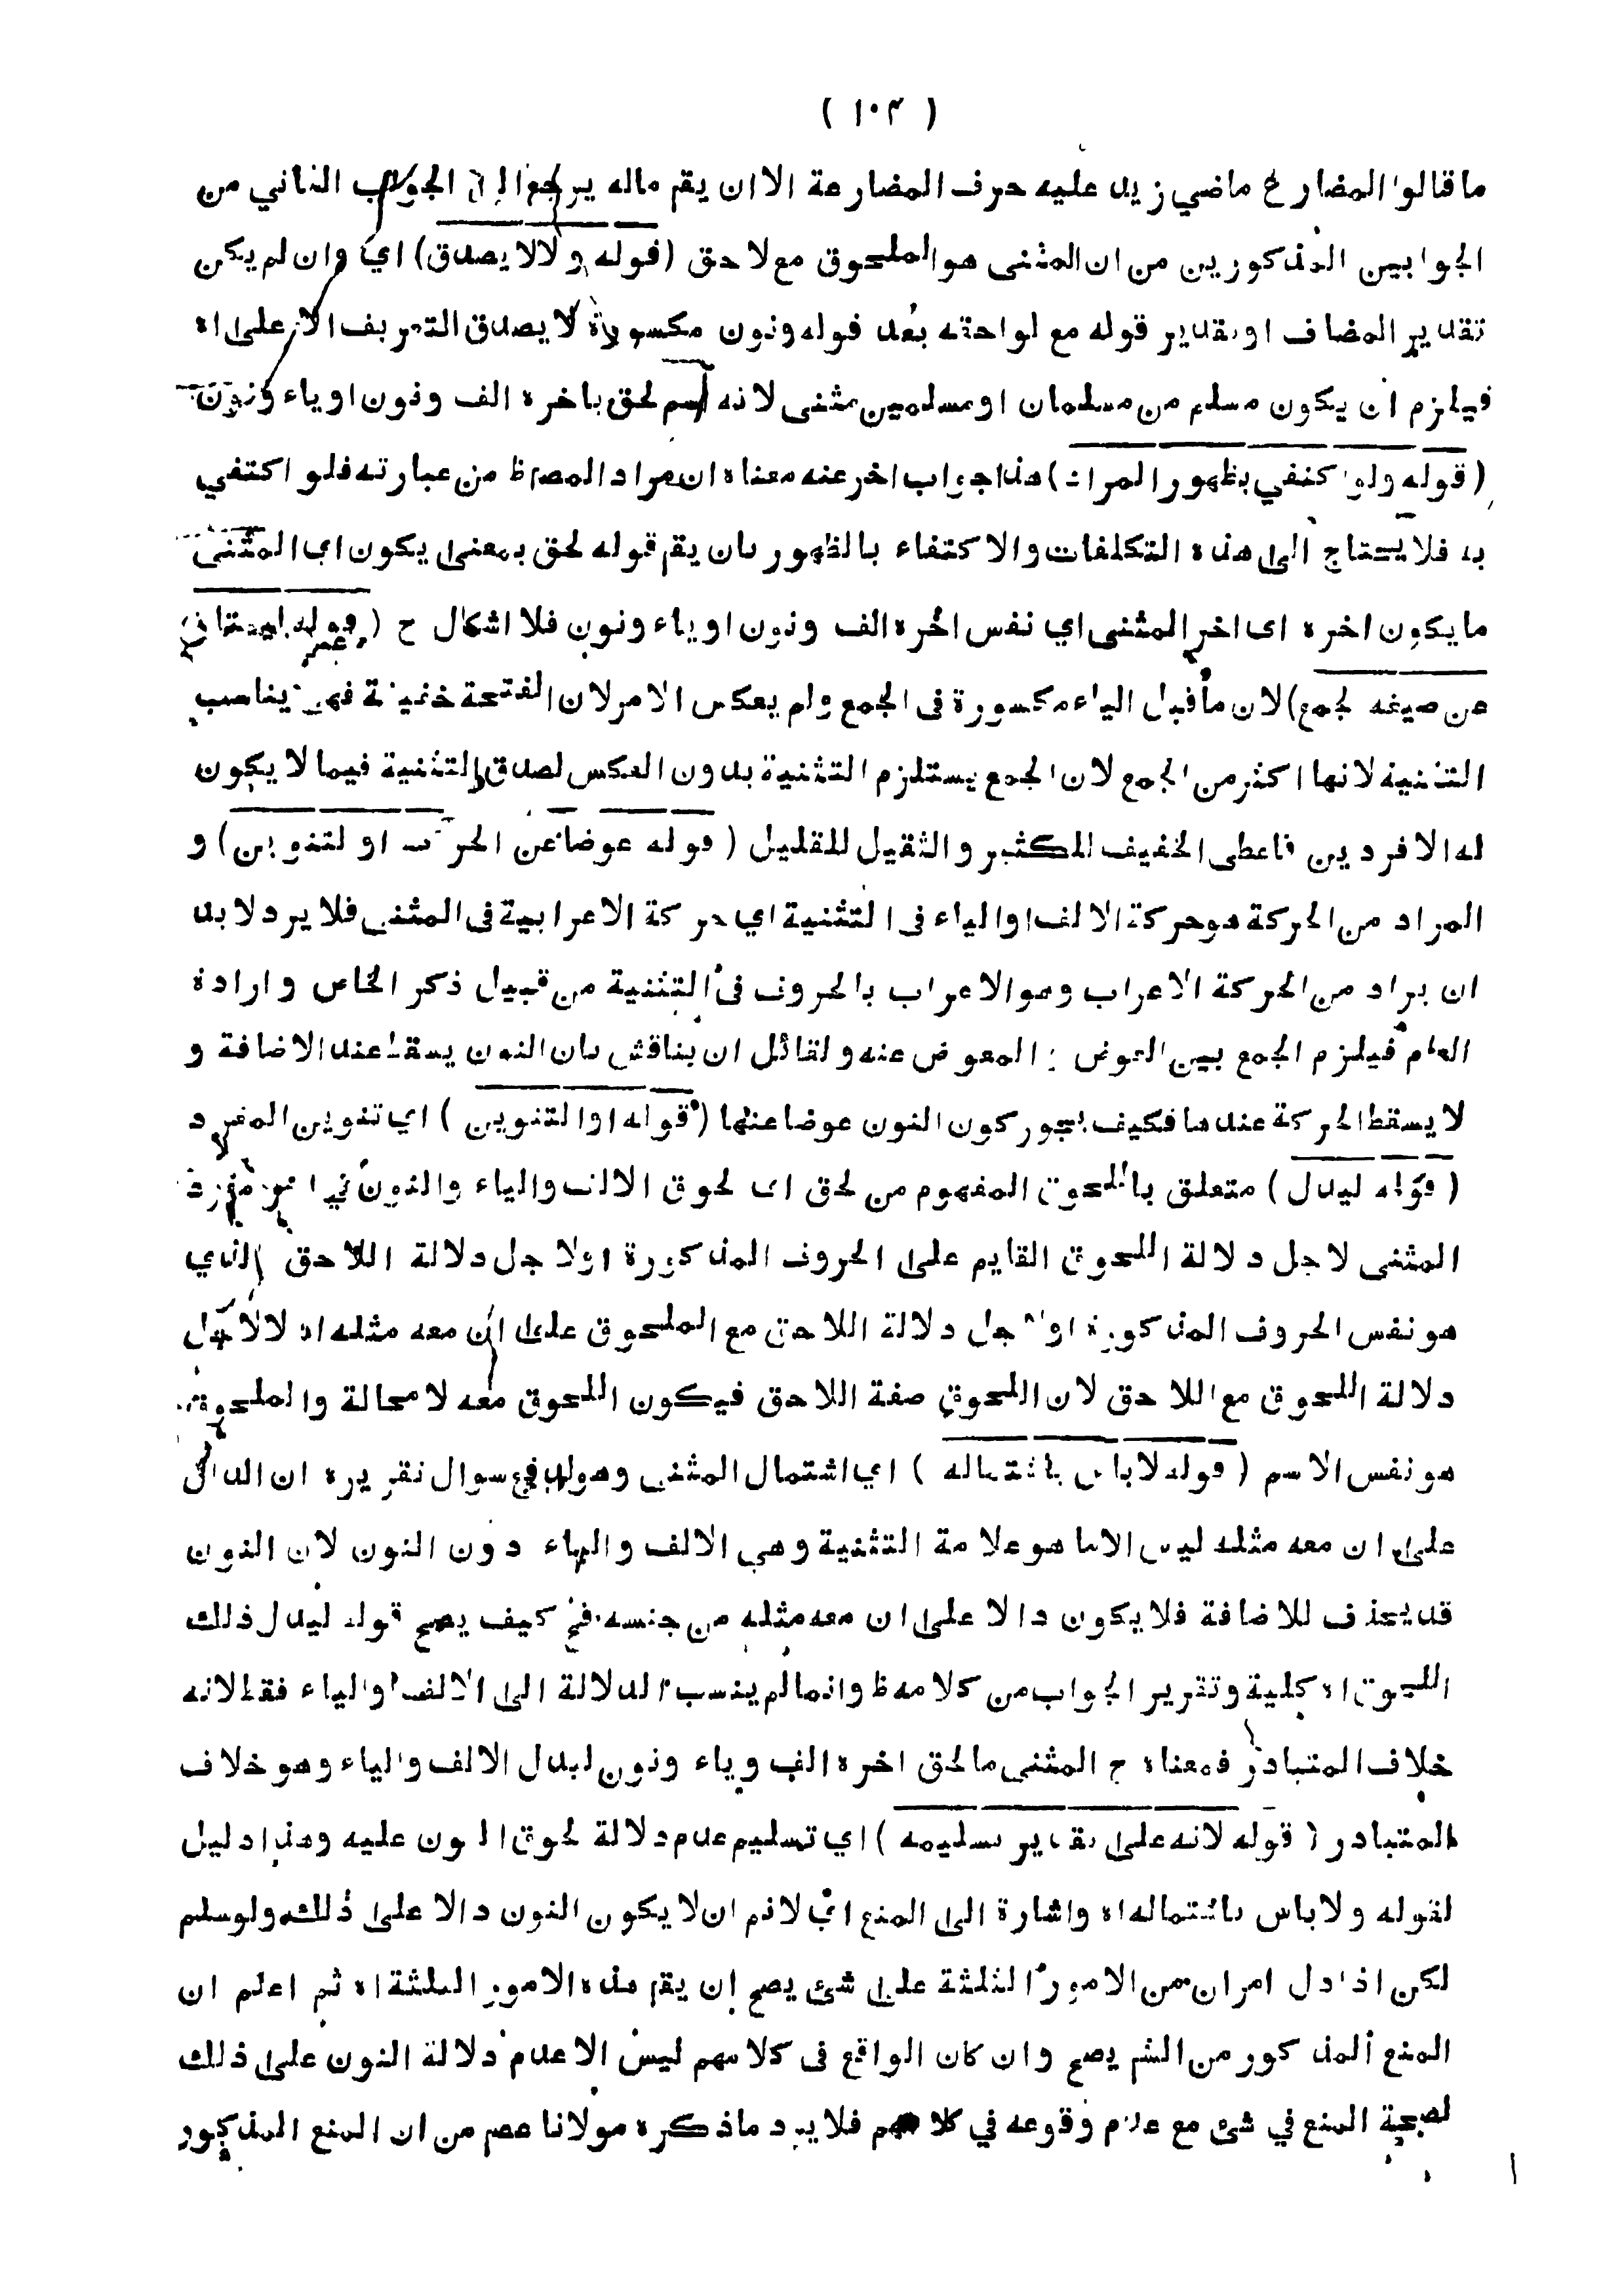 ( ١٠٣ )
ما قالوا المضارع ماضي زيد عليه حرف المضارعة الا ان يقم ماله يرجع الى الجواب الثاني من
الجوابين المذكورين من ان المثنى هو الملحوق مع لاحق (قوله والا لا يصدق) اي وان لم يكن
تقدير المضاف او تقدير قوله مع لواحقه بعد قوله ونون مكسورة لا يصدق التعريف الا على اه
فيلزم ان يكون مسلم من مسلمان او مسلمين مثنى لانه اسم لحق باخره الف ونون او ياء ونون
(قوله ولو اكتفي بظهور المراد) هذا جواب اخر عنه معناه ان مراد المص ظ من عبارته فلو اكتفي
به فلا يحتاج الى هذه التكلفات والاكتفاء بالظهور بان يقم قوله لحق بمعنى يكون اى المثنى
ما يكون اخره اى اخر المثنى اي نفس اخره الف ونون او ياء ونون فلا اشكال ح (قوله ليمتاز
عن صيغة لجمع) لان ما قبل الياء مكسورة فى الجمع ولم يعكس الامر لان الفتحة خفيفة فهى يناسب
التثنية لانها اكثر من الجمع لان الجمع يستلزم التثنية بدون العكس لصدق التثنية فيما لا يكون
له الا فردين فاعطى الخفيف للكثير والثقيل للقليل (قوله عوضا عن الحركة او لتنوين) و
المراد من الحركة هو حركة الالف او الياء فى التثنية اي حركة الاعرابية فى المثنى فلا يرد لابد
ان يراد من الحركة الاعراب وهو الاعراب بالحروف فى التثنية من قبيل ذكر الخاص وارادة
العام فيلزم الجمع بين العوض و المعوض عنه ولقائل ان يناقش بان النون يسقط عند الاضافة و
لا يسقط الحركة عندها فكيف يجوز كون النون عوضا عنها (قوله او التنوين) اي تنوين المفرد
(قوله ليدل) متعلق باللحوق المفهوم من لحق اى لحوق الالف والياء والنون في اخر مفرد
المثنى لاجل دلالة اللحوق القايم على الحروف المذكورة او لاجل دلالة اللاحق الذي
هو نفس الحروف المذكورة او لاجل دلالة اللاحق مع الملحوق على ان معه مثله اه لا لاجل
دلالة اللحوق مع اللاحق لان اللحوق صفة اللاحق فيكون اللحوق معه لا محالة والملحوق
هو نفس الاسم (قوله لا باس باشتماله) اي اشتمال المثنى وهو دفع سوال تقريره ان الدال
على ان معه مثله ليس الا ما هو علامة التثنية وهي الالف والياء دون النون لان النون
قد يحذف للاضافة فلا يكون دالا على ان معه مثله من جنسه فح كيف يصح قوله ليدل ذلك
اللحوق اه كلية وتقرير الجواب من كلامه ظ وانما لم ينسب الدلالة الى الالف او الياء فقط لانه
خلاف المتبادر فمعناه ح المثنى ما لحق اخره الف وياء ونون ليدل الالف والياء وهو خلاف
المتبادر (قوله لانه على تقدير تسليمه) اي تسليم عدم دلالة لحوق النون عليه وهذا دليل
لقوله ولا باس باشتماله اه واشارة الى المنع اي لا نم ان لا يكون النون دالا على ذلك ولو سلم
لكن اذا دل امران من الامور الثلثة على شئ يصح ان يقم هذه الامور الثلثة اه ثم اعلم ان
المنع المذكور من الشم يصح وان كان الواقع فى كلامهم ليس الا عدم دلالة النون على ذلك
لصحة المنع في شئ مع عدم وقوعه في كلامهم فلا يرد ما ذكره مولانا عصم من ان المنع المذكور